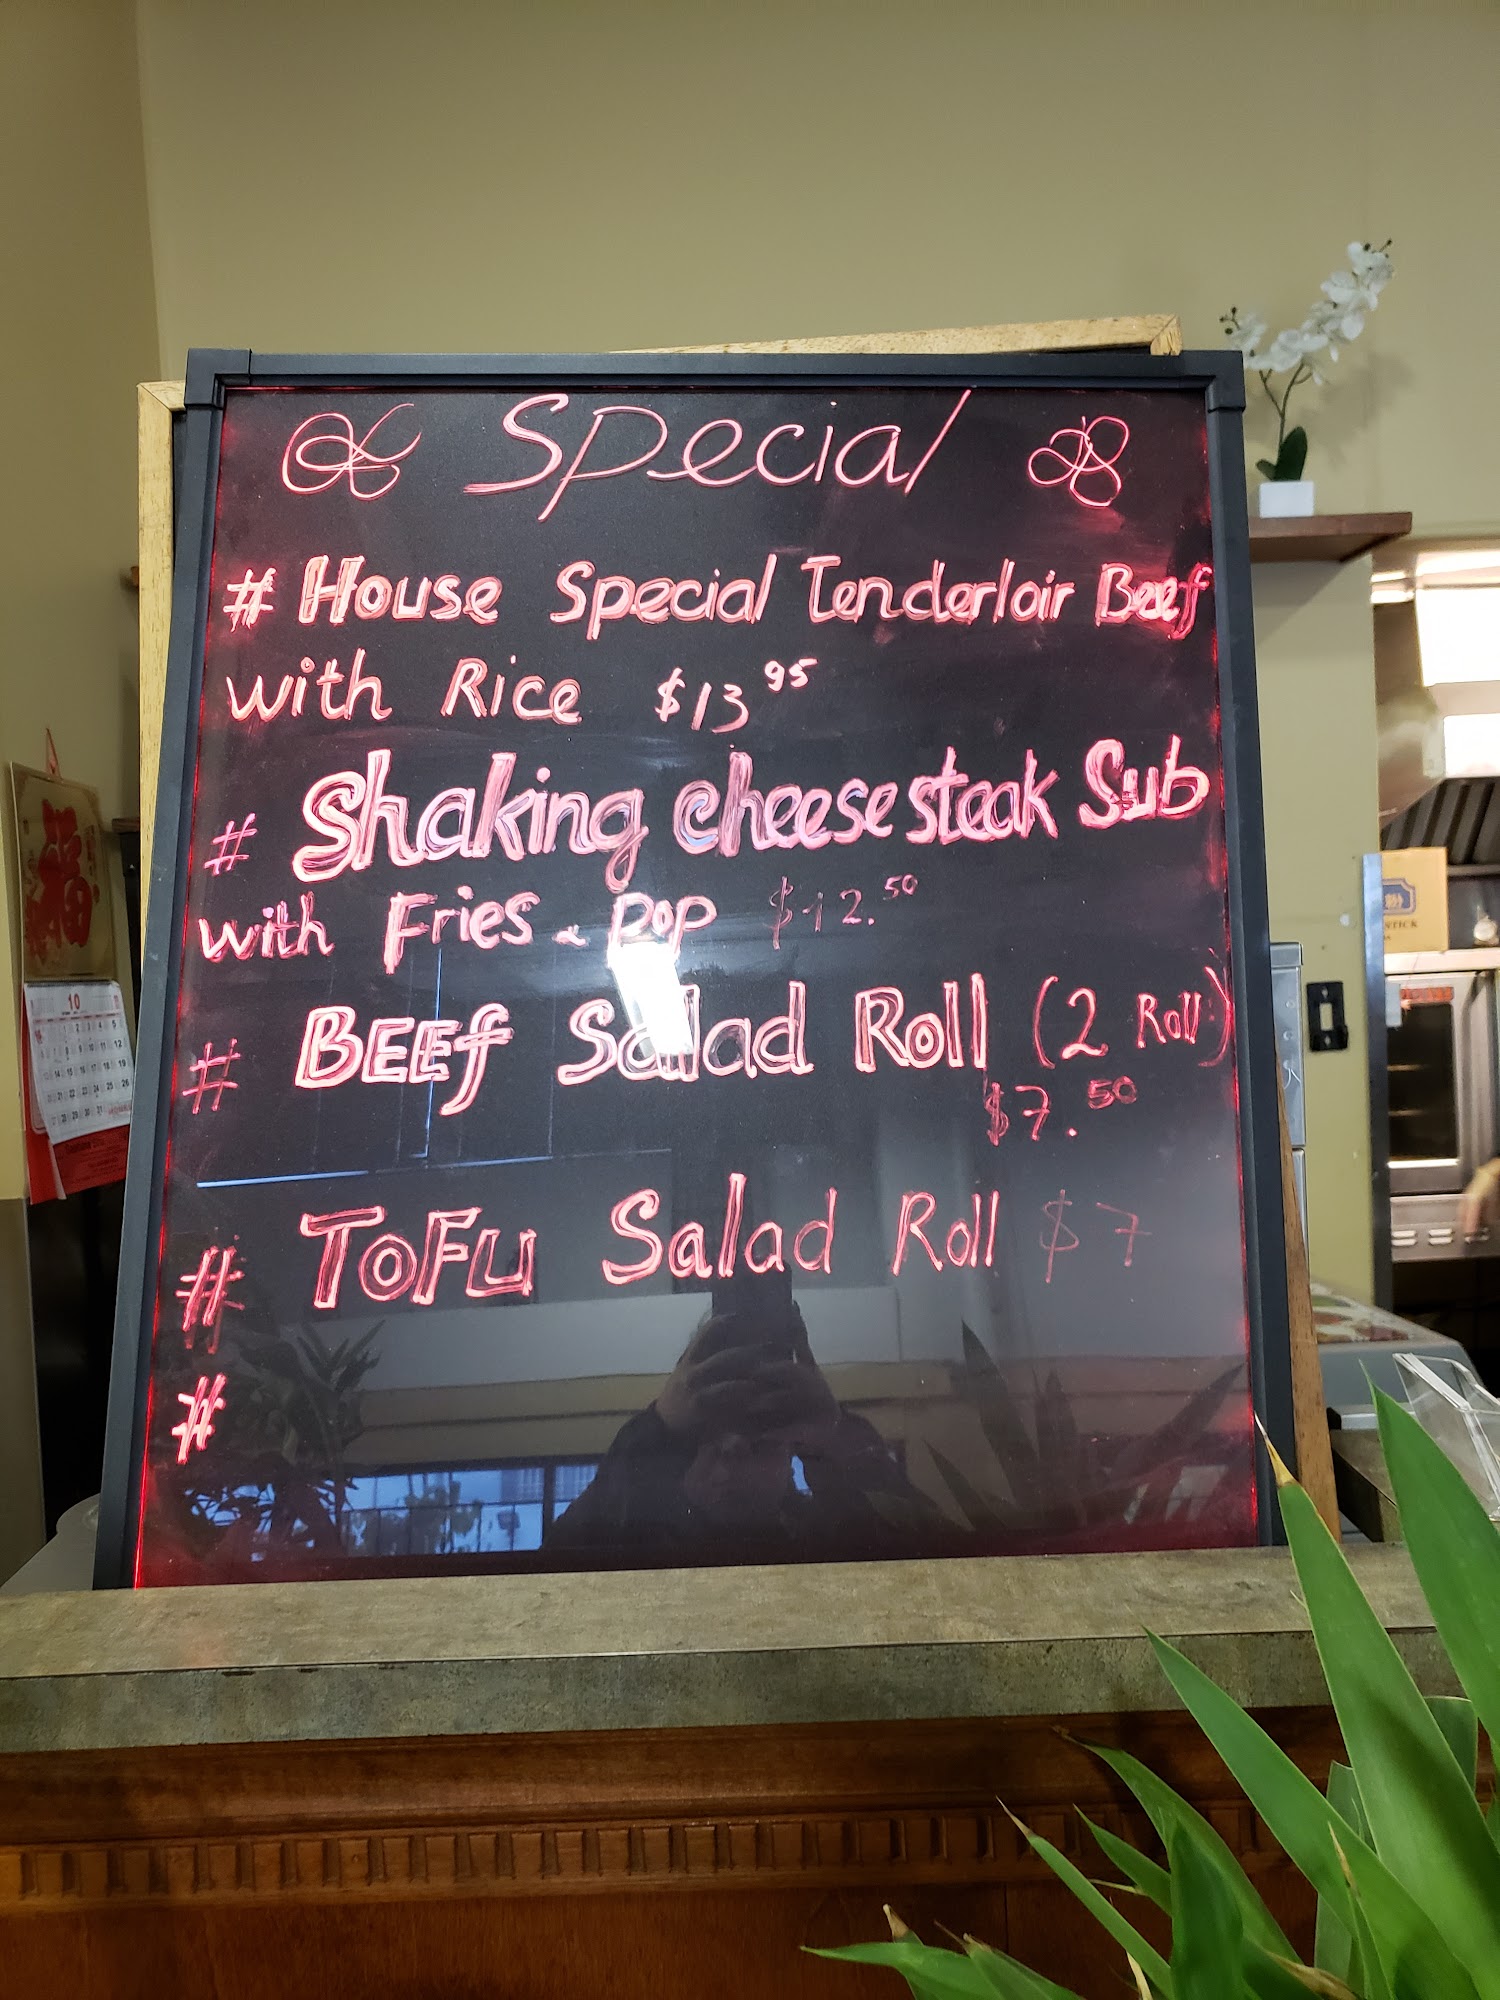 Special
# House Special Tenderloir Beef
with Rice $13 95
# Shaking cheese steak Sub
with Fries & pop $12.50
# BEEf Salad Roll (2 Roll)
$7.50
# ToFu Salad Roll $7
#
福
10
STICK